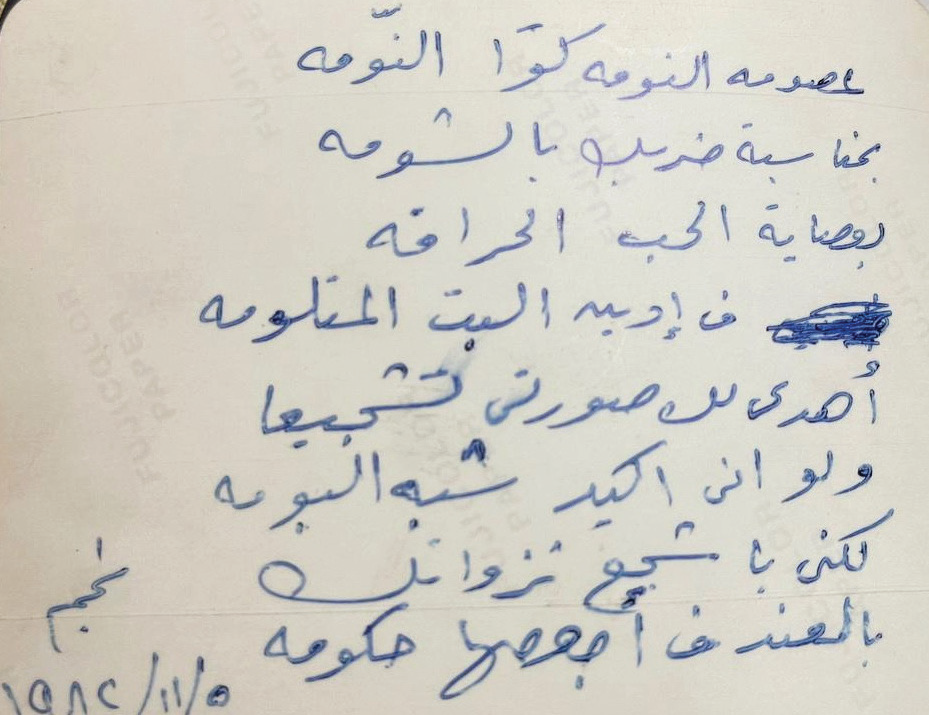 عصومه النومه كوّا النّومه
بمناسبة ضربك بالشومه
بوصاية الحب الحرامه
ف إدين البت المتلومه
أهدى لك صورتى تشجيعا
ولو انى اكيد شبه البومه
لكنى باشجع نزواتك
بالعند ف أجعصها حكومه
نجم
١٩٨٢/١١/٥
FUJICOLOR PAPER